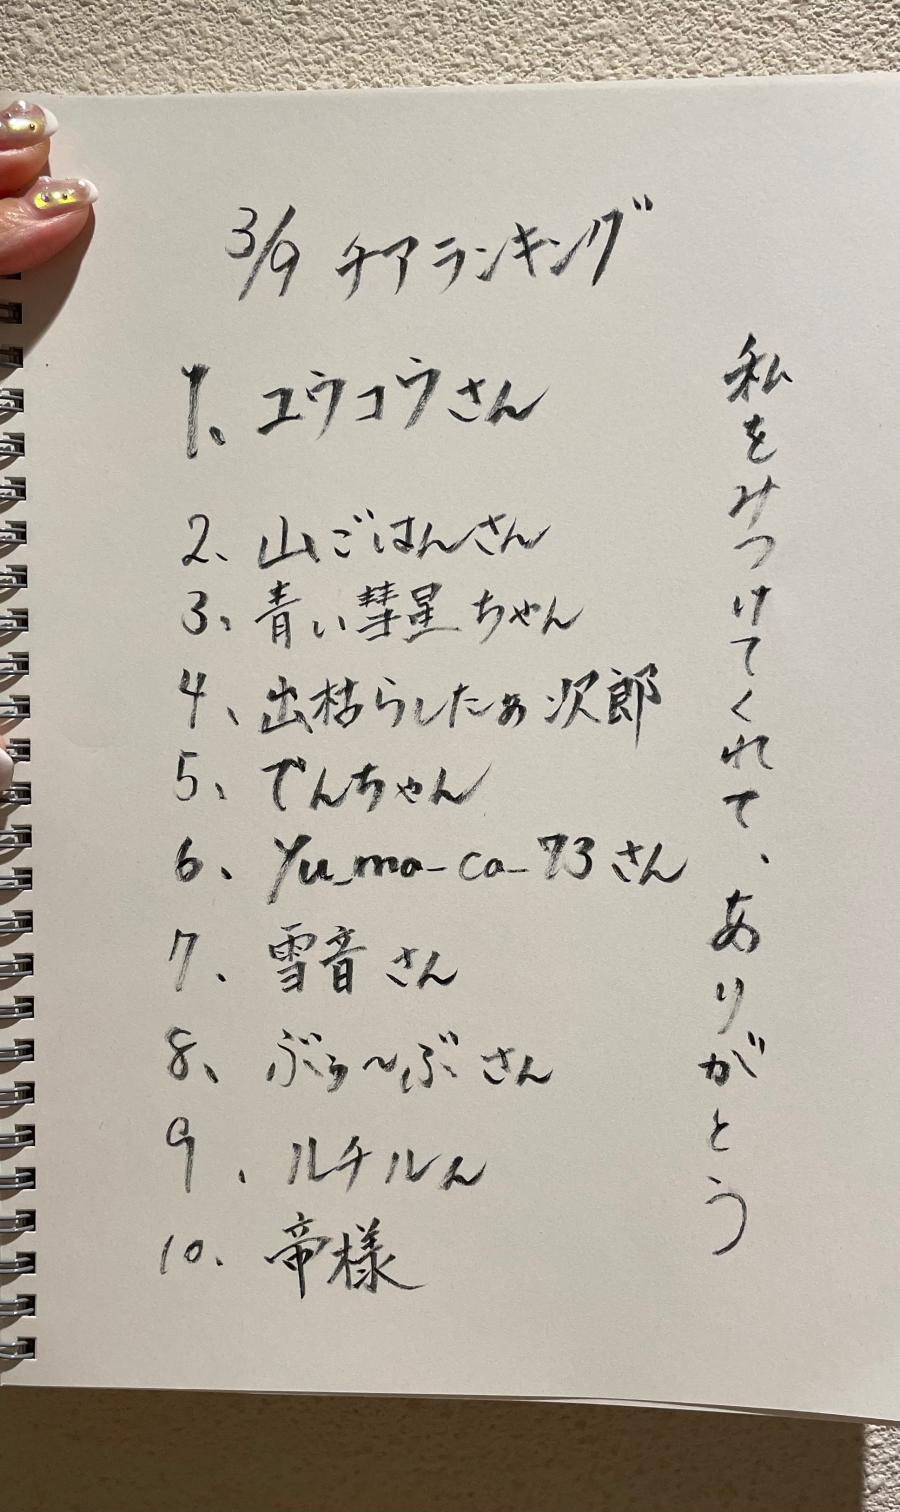 3/9 チアランキング
1、ユウコウさん
2、山ごはんさん
3、青い彗星ちゃん
4、出枯らしたぁ次郎
5、でんちゃん
6、Yu_ma_ca_73さん
7、雪音さん
8、ぶぅ〜ぶさん
9、ルチルん
10、帝様
私をみつけてくれて、ありがとう